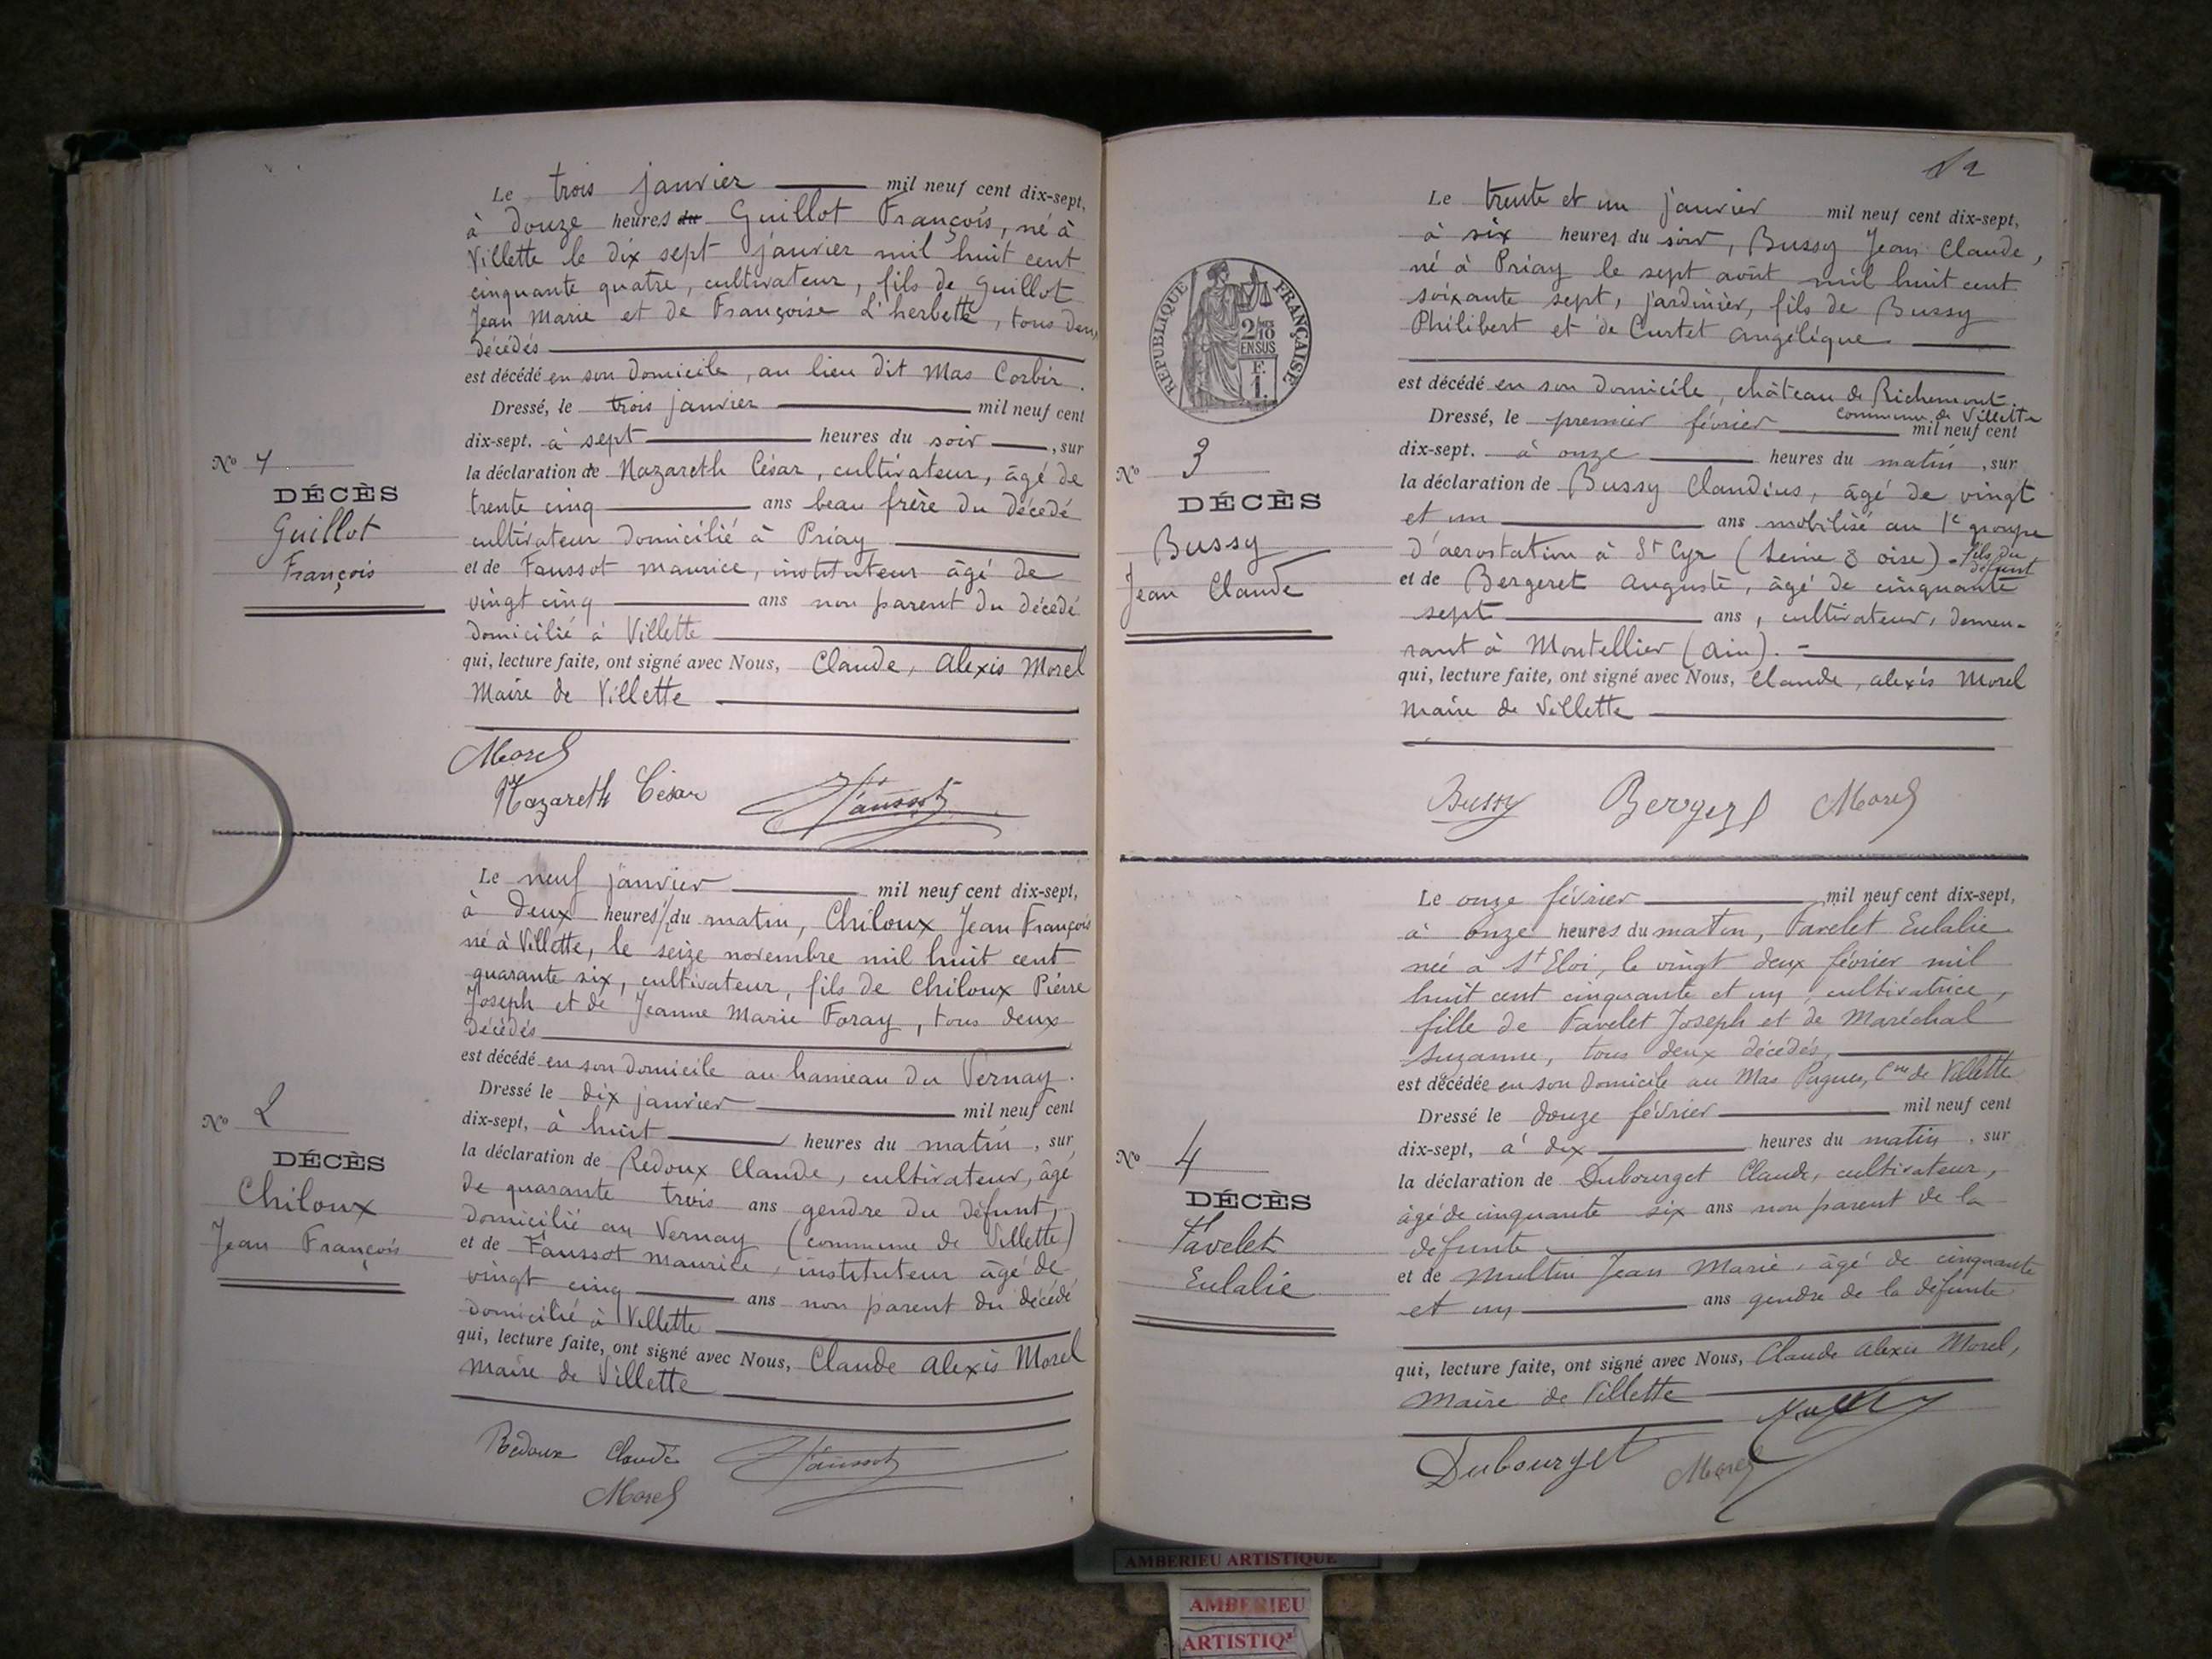 Le trois janvier mil neuf cent dix-sept,
à douze heures du Guillot François, né à
Villette le dix sept janvier mil huit cent
cinquante quatre, cultivateur, fils de Guillot
Jean Marie et de Françoise L'herbette, tous deux
décédés
est décédé en son domicile, au lieu dit Mas Corbir.
Dressé, le trois janvier mil neuf cent
dix-sept. à sept heures du soir, sur
la déclaration de Nazareth César, cultivateur, âgé de
trente cinq ans beau frère du décédé
cultivateur domicilié à Priay
et de Faussot maurice, instituteur âgé de
vingt cinq ans non parent du décédé
domicilié à Villette
qui, lecture faite, ont signé avec Nous, Claude, Alexis Morel
Maire de Villette
Morel
Nazareth César Faussot
No 1
DÉCÈS
Guillot
François
Le neuf janvier mil neuf cent dix-sept,
à deux heures 1/2 du matin, Chiloux Jean François
né à Villette, le seize novembre mil huit cent
quarante six, cultivateur, fils de Chiloux Pierre
Joseph et de Jeanne Marie Foray, tous deux
décédés
est décédé en son domicile au hameau du Vernay.
Dressé le dix janvier mil neuf cent
dix-sept, à huit heures du matin, sur
la déclaration de Redoux Claude, cultivateur, âgé
de quarante trois ans gendre du défunt,
domicilié au Vernay (commune de Villette)
et de Faussot maurice, instituteur âgé de
vingt cinq ans non parent du décédé
domicilié à Villette
qui, lecture faite, ont signé avec Nous, Claude Alexis Morel
Maire de Villette
Redoux Claude Faussot
Morel
No 2
DÉCÈS
Chiloux
Jean François
12
RÉPUBLIQUE FRANÇAISE
2/10
EN SUS
F.
1.
Le trente et un janvier mil neuf cent dix-sept,
à six heures du soir, Bussy Jean Claude,
né à Priay le sept août mil huit cent
soixante sept, jardinier, fils de Bussy
Philibert et de Curtet Angélique
est décédé en son domicile, château de Richemont
commune de Villette
Dressé, le premier février mil neuf cent
dix-sept. à onze heures du matin, sur
la déclaration de Bussy Claudius, âgé de vingt
et un ans mobilisé au 1e groupe
d'aerostation à St Cyr (Seine & oise) - fils du
défunt
et de Bergeret Auguste, âgé de cinquante
sept ans, cultivateur, demeu-
rant à Montellier (Ain). -
qui, lecture faite, ont signé avec Nous, Claude, Alexis Morel
Maire de Villette
Bussy Morel
No 3
DÉCÈS
Bussy
Jean Claude
Le onze février mil neuf cent dix-sept,
à onze heures du matin, Favelet Eulalie
née à St Eloi, le vingt deux février mil
huit cent cinquante et un, cultivatrice,
fille de Favelet Joseph et de Maréchal
Suzanne, tous deux décédés,
est décédée en son domicile au Mas Pugues, Cne de Villette
Dressé le douze février mil neuf cent
dix-sept, à dix heures du matin, sur
la déclaration de Dubourget Claude, cultivateur,
âgé de cinquante six ans non parent de la
défunte
et de Multin Jean Marie, âgé de cinquante
et un ans gendre de la défunte
qui, lecture faite, ont signé avec Nous, Claude Alexis Morel,
Maire de Villette
Dubourget Morel
No 4
DÉCÈS
Favelet
Eulalie
AMBERIEU ARTISTIQUE
AMBERIEU
ARTISTIQ